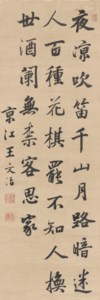 夜凉吹笛千山月路暗迷
人百種花棋罷不知人換
世酒闌無柰客思家
京江王文治